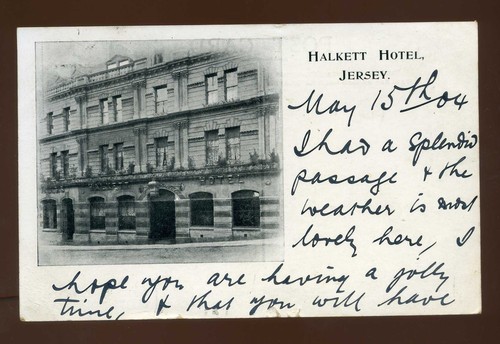 HALKETT HOTEL,
JERSEY.
May 15th 04
I had a splendid
passage & the
weather is most
lovely here, I
hope you are having a jolly
time, & that you will have